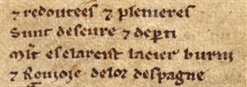 ⁊ redoutees ⁊ plenieres
Sunt deseure ⁊ de p̄ti
Mlt esclarcist lacier burni
⁊ flouroie delor despagne